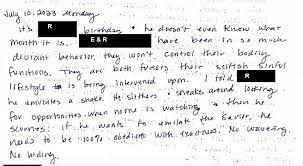 July 10, 2023 Monday
It's R birthday & he doesn't even know what
month it is. E&R have been in so much
deviant behavior, they won't control their bodily
functions. They are both further their selfish sinful
lifestyle is being intervened upon. I told R
he emulates a snake. He slithers & sneaks around looking
for opportunities when none is watching & then he
scurries. If he wants to emulate the Savior, he
needs to be 100% obedient with exactness. No wavering.
No hiding.